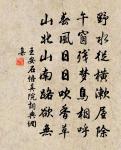 野水從橫漱屋除
午窗殘夢鳥相呼
春風日日吹香草
山北山南路欲無
王安石悟真院詞典網
集